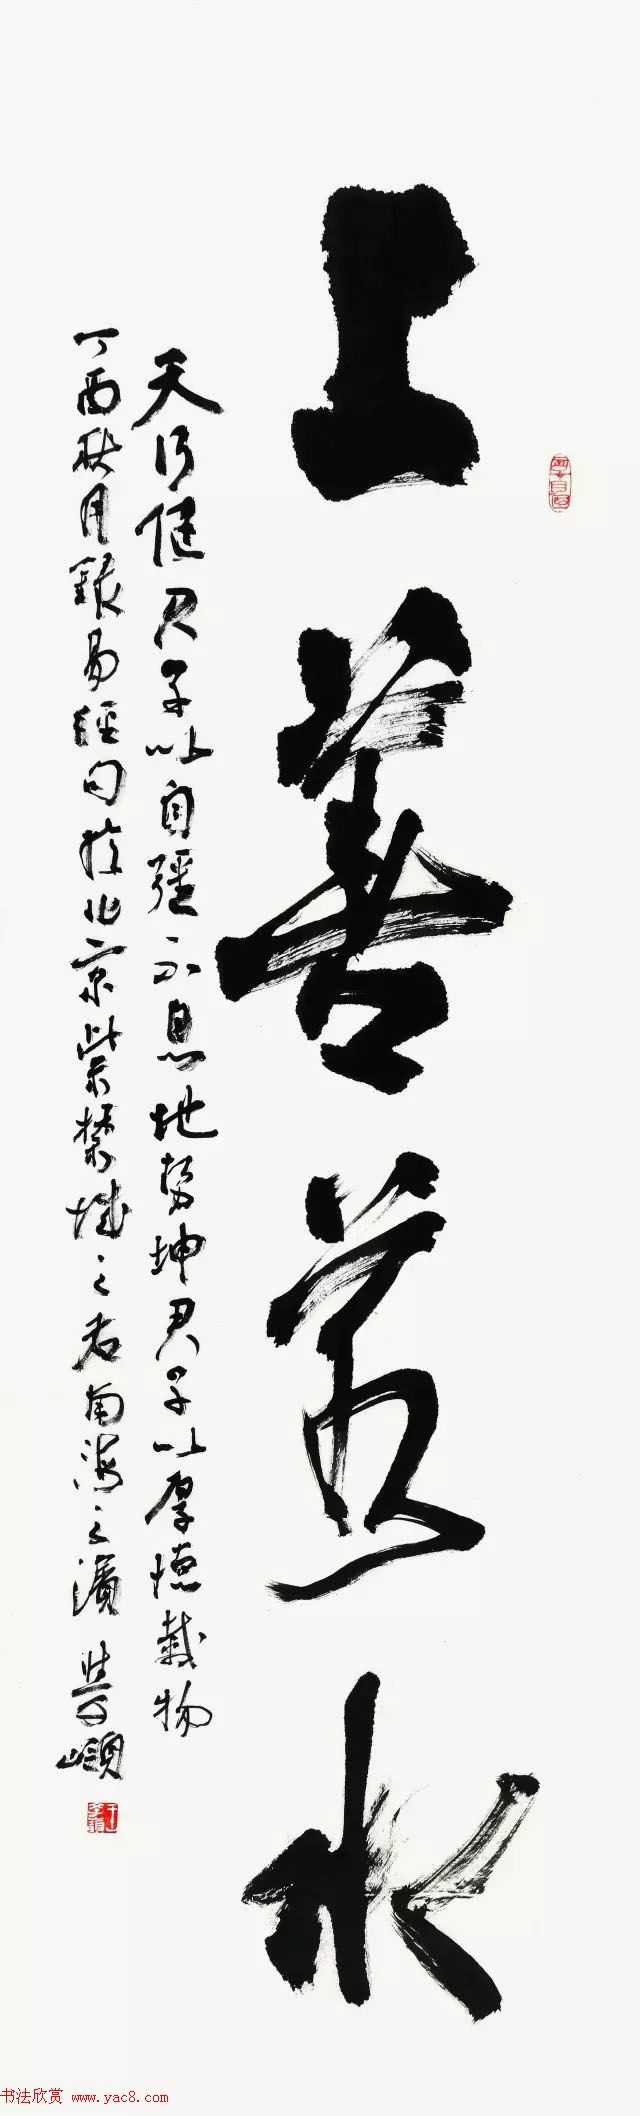 上善若水
天行健君子以自强不息地势坤君子以厚德载物
丁酉秋月录易经句于北京紫禁城之右南海之滨
书法欣赏 www.yac8.com